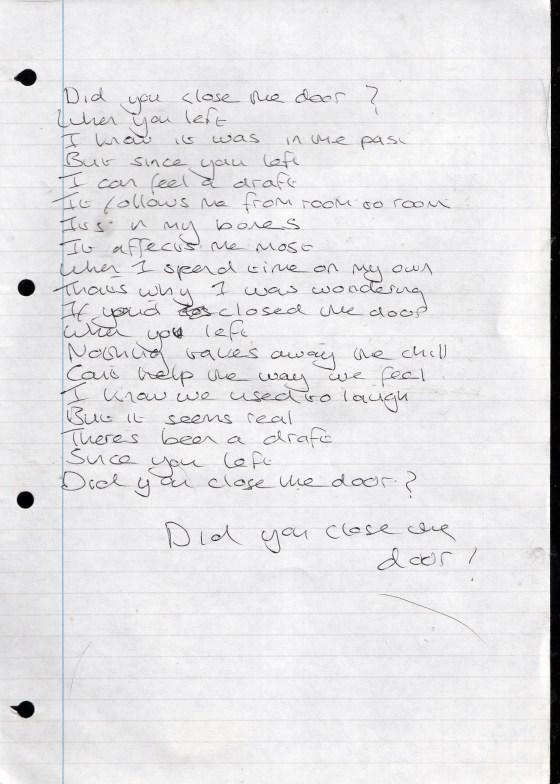 Did you close the door ?
When you left
I know it was in the past
But since you left
I can feel a draft
It follows me from room to room
Its in my bones
It affects me most
When I spend time on my own
Thats why I was wondering
If youd closed the door
When you left
Nothing takes away the chill
Cant help the way we feel
I know we used to laugh
But it seems real
Theres been a draft
Since you left
Did you close the door ?
Did you close the
door !